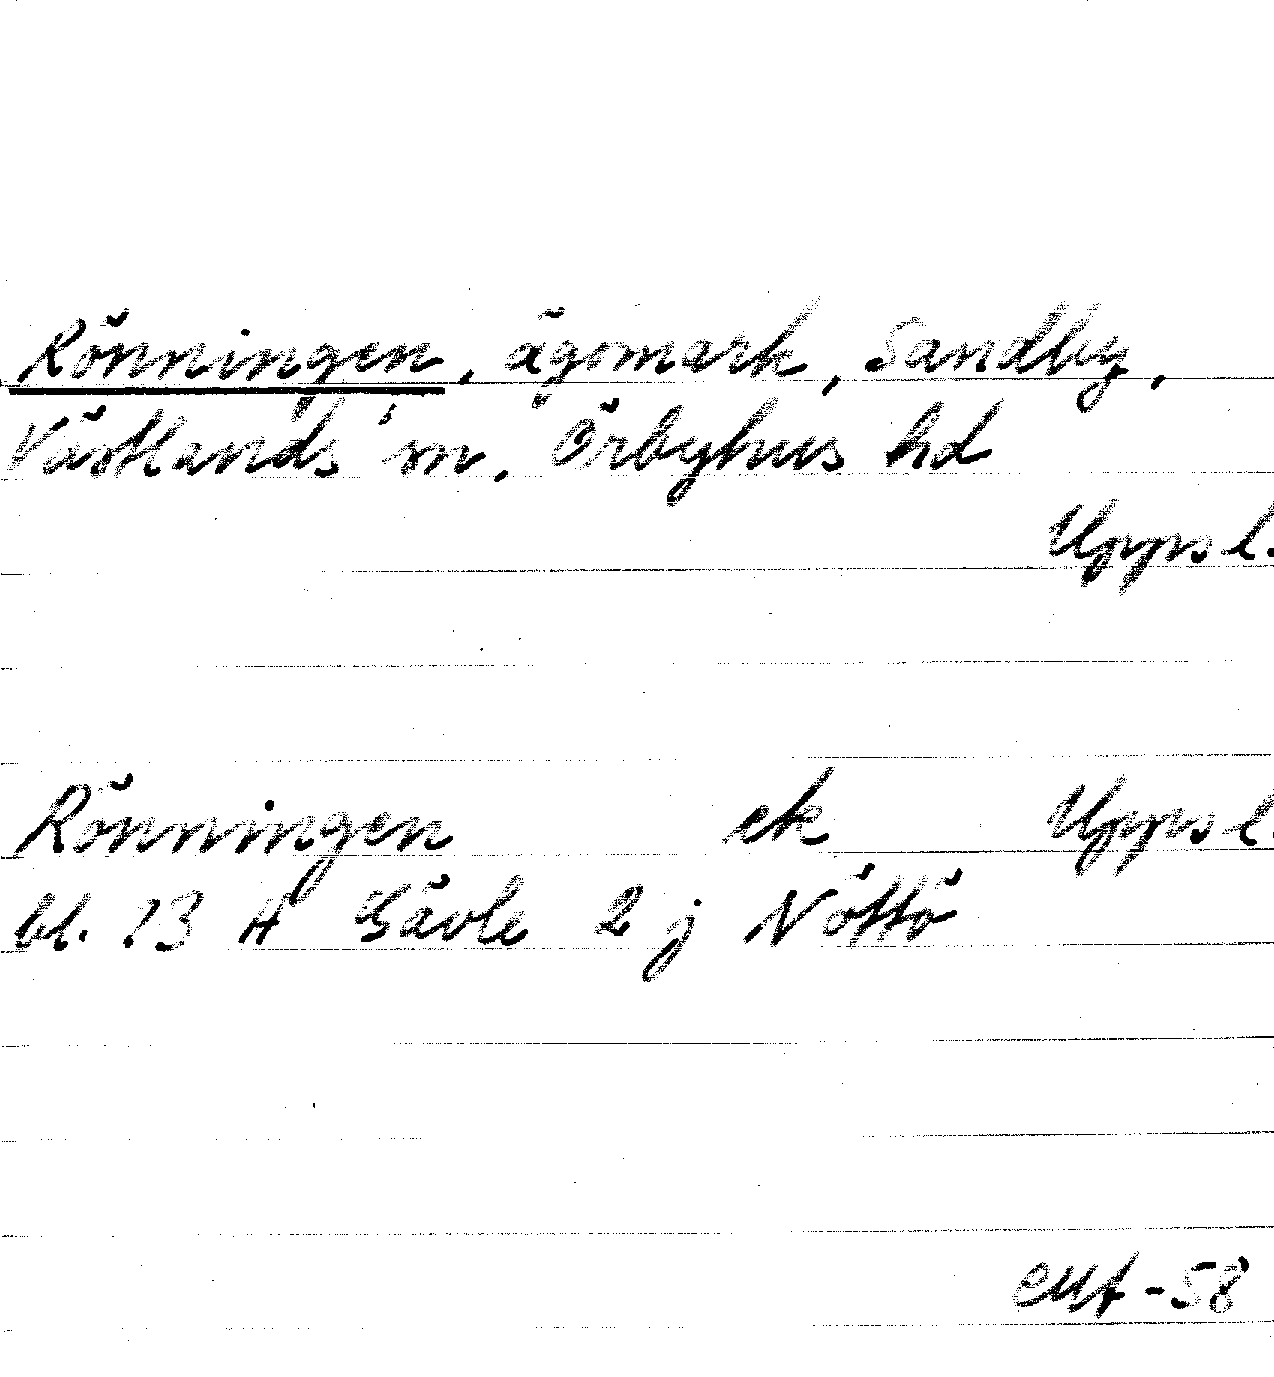 Rönningen, ägomark, Sandby,
Västlands sn. Örbyhus hd
Upps l.
Rönningen ek Upps l.
bl. 13 H Gävle 2 j Nöttö
-58